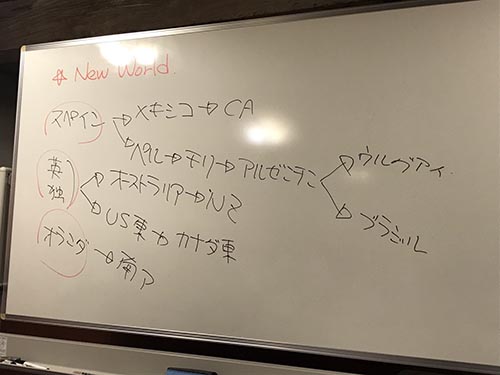 ☆ New World.
スペイン → メキシコ → CA
→ ペルー → チリー → アルゼンチン → ウルグアイ
→ ブラジル
英 独 → オーストラリア → NZ
→ US東 → カナダ東
オランダ → 南ア